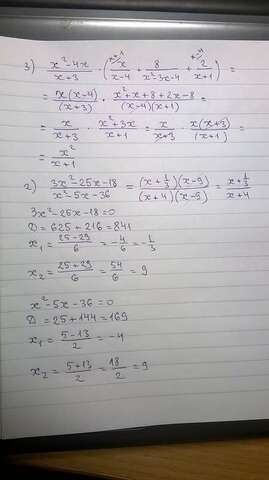 3) (x²-4x)/(x+3) · (x/(x-4) + 8/(x²-3x-4) + 2/(x+1)) =
= x(x-4)/(x+3) · (x²+x+8+2x-8)/((x-4)(x+1)) =
= x/(x+3) · (x²+3x)/(x+1) = x/(x+3) · x(x+3)/(x+1) =
= x²/(x+1)
2) (3x²-25x-18)/(x²-5x-36) = (x+1/3)(x-9)/((x+4)(x-9)) = (x+1/3)/(x+4)
3x²-25x-18=0
D=625+216=841
x₁=(25-29)/6=-4/6=-1/3
x₂=(25+29)/6=54/6=9
x²-5x-36=0
D=25+144=169
x₁=(5-13)/2=-4
x₂=(5+13)/2=18/2=9